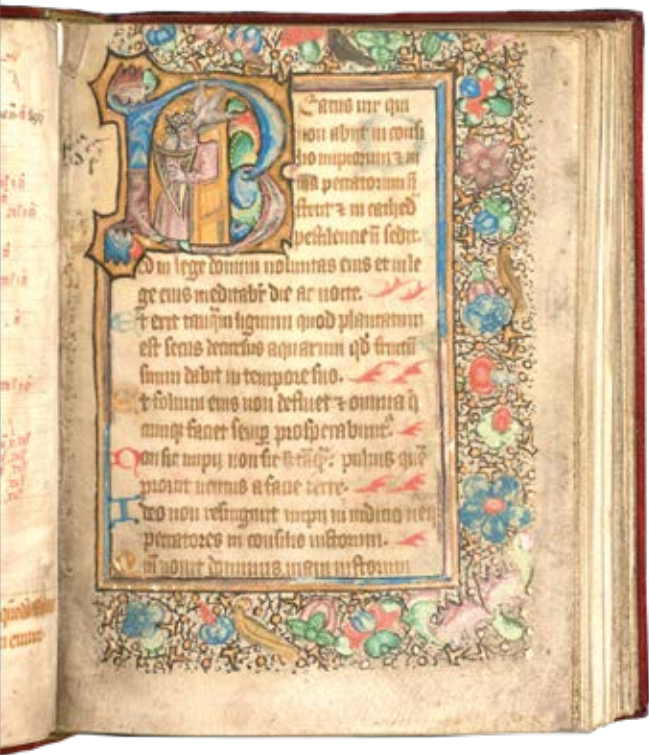 Beatus vir qui
non abiit in consi
lio impiorum ⁊ in
via peccatorum n̄
stetit ⁊ in cathed̄
pestilencie n̄ sedit.
Sed in lege domini voluntas eius et in le
ge eius meditabr̄ die ac nocte.
Et erit tanq̄ lignum quod plantatum
est secus decursus aquarum qd̄ fructū
suum dabit in tempore suo.
Et folium eius non defluet ⁊ omnia q̄
cumqꝫ faciet semꝑ prosperabunt̄.
Non sic impij non sic puluis quē
proicit ventus a facie terre.
Ideo non resurgunt impij in iudicio neqꝫ
peccatores in consilio iustorum.
Qm̄ nouit dominus viam iustorum